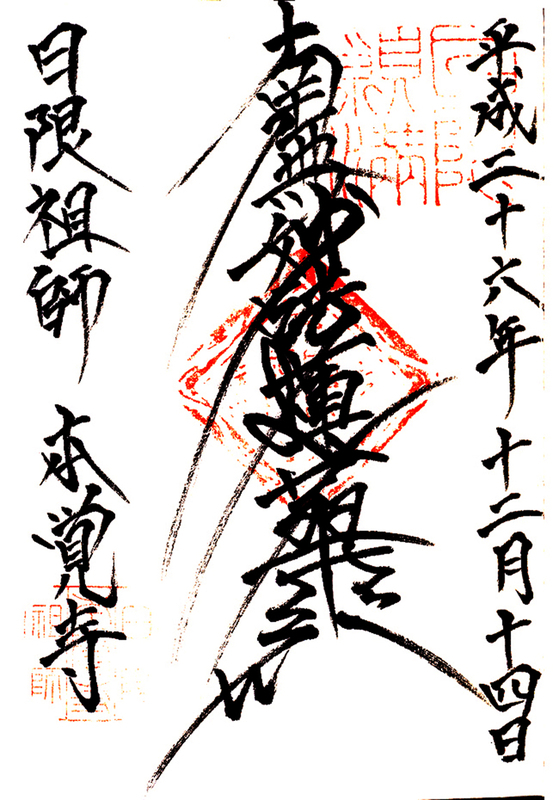 平成二十六年十二月十四日
南無妙法蓮華経
日限祖師 本覚寺